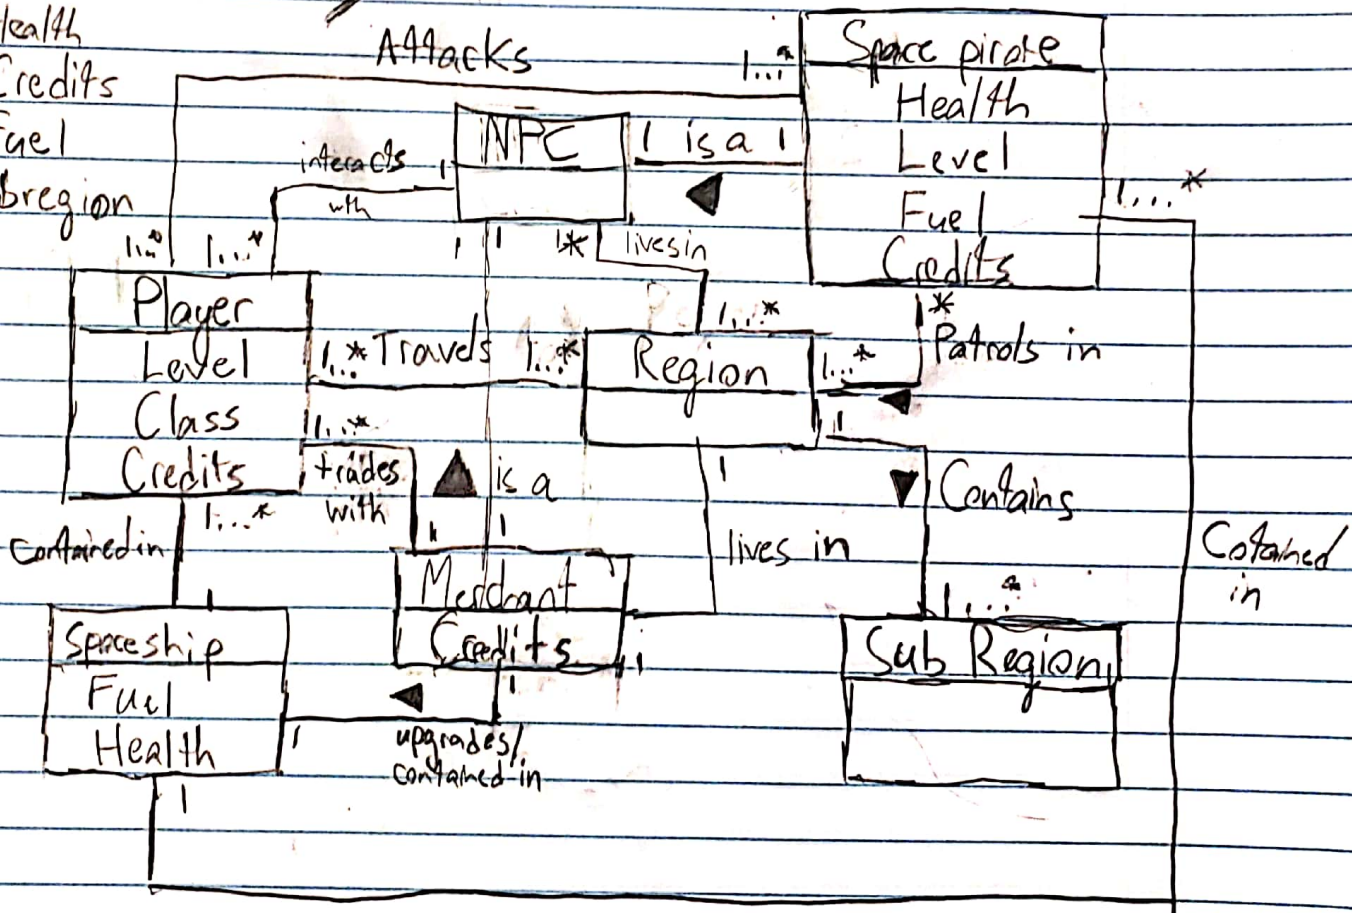 Health
Credits
Fuel
bregion
Attacks
1...*
Space pirate
Health
Level
Fuel
Credits
NPC
1 is a 1
interacts
with
1
1...*
1...*
1...*
1
1
1*
lives in
1...*
Player
Level
Class
Credits
1...* Travels 1...*
Region
1...*
*
Patrols in
1...*
trades
with
is a
1
1
Contains
1...*
contained in
1
1
lives in
Cotained
in
1...*
Merchant
Credits
1
1
Spaceship
Fuel
Health
1
upgrades/
contained in
Sub Region
1